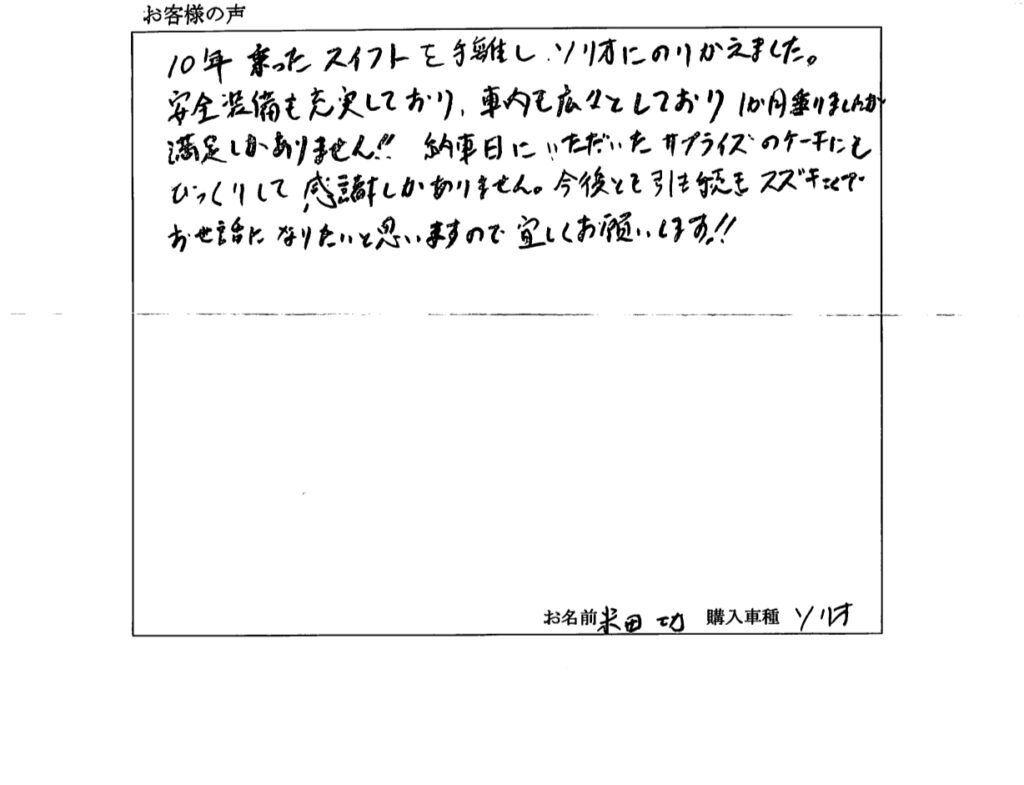 お客様の声
10年乗ったスイフトを手離し、ソリオにのりかえました。
安全装備も充実しており、車内も広々としており1か月乗りましたが
満足しかありません!! 納車日にいただいたサプライズのケーキにも
びっくりして感謝しかありません。今後とも引き続きスズキさんで
お世話になりたいと思いますので宜しくお願いします!!
お名前 米田 功 購入車種 ソリオ